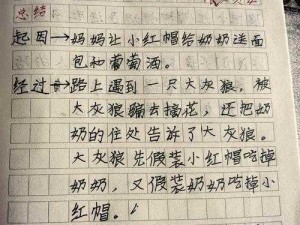 总结
起因→妈妈让小红帽给奶奶送面
包和葡萄酒。
经过→路上遇到一只大灰狼，被
大灰狼骗去摘花，还把奶
奶的住处告诉了大灰狼。
大灰狼先假装小红帽吃掉
奶奶，又假装奶奶吃掉小
红帽。